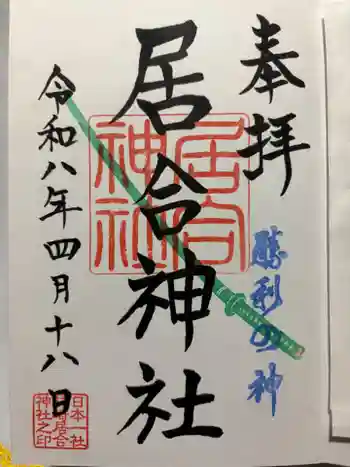 奉拝
勝利の神
居合神社
居合神社
令和八年四月十八日
日本一社
居合
神社之印